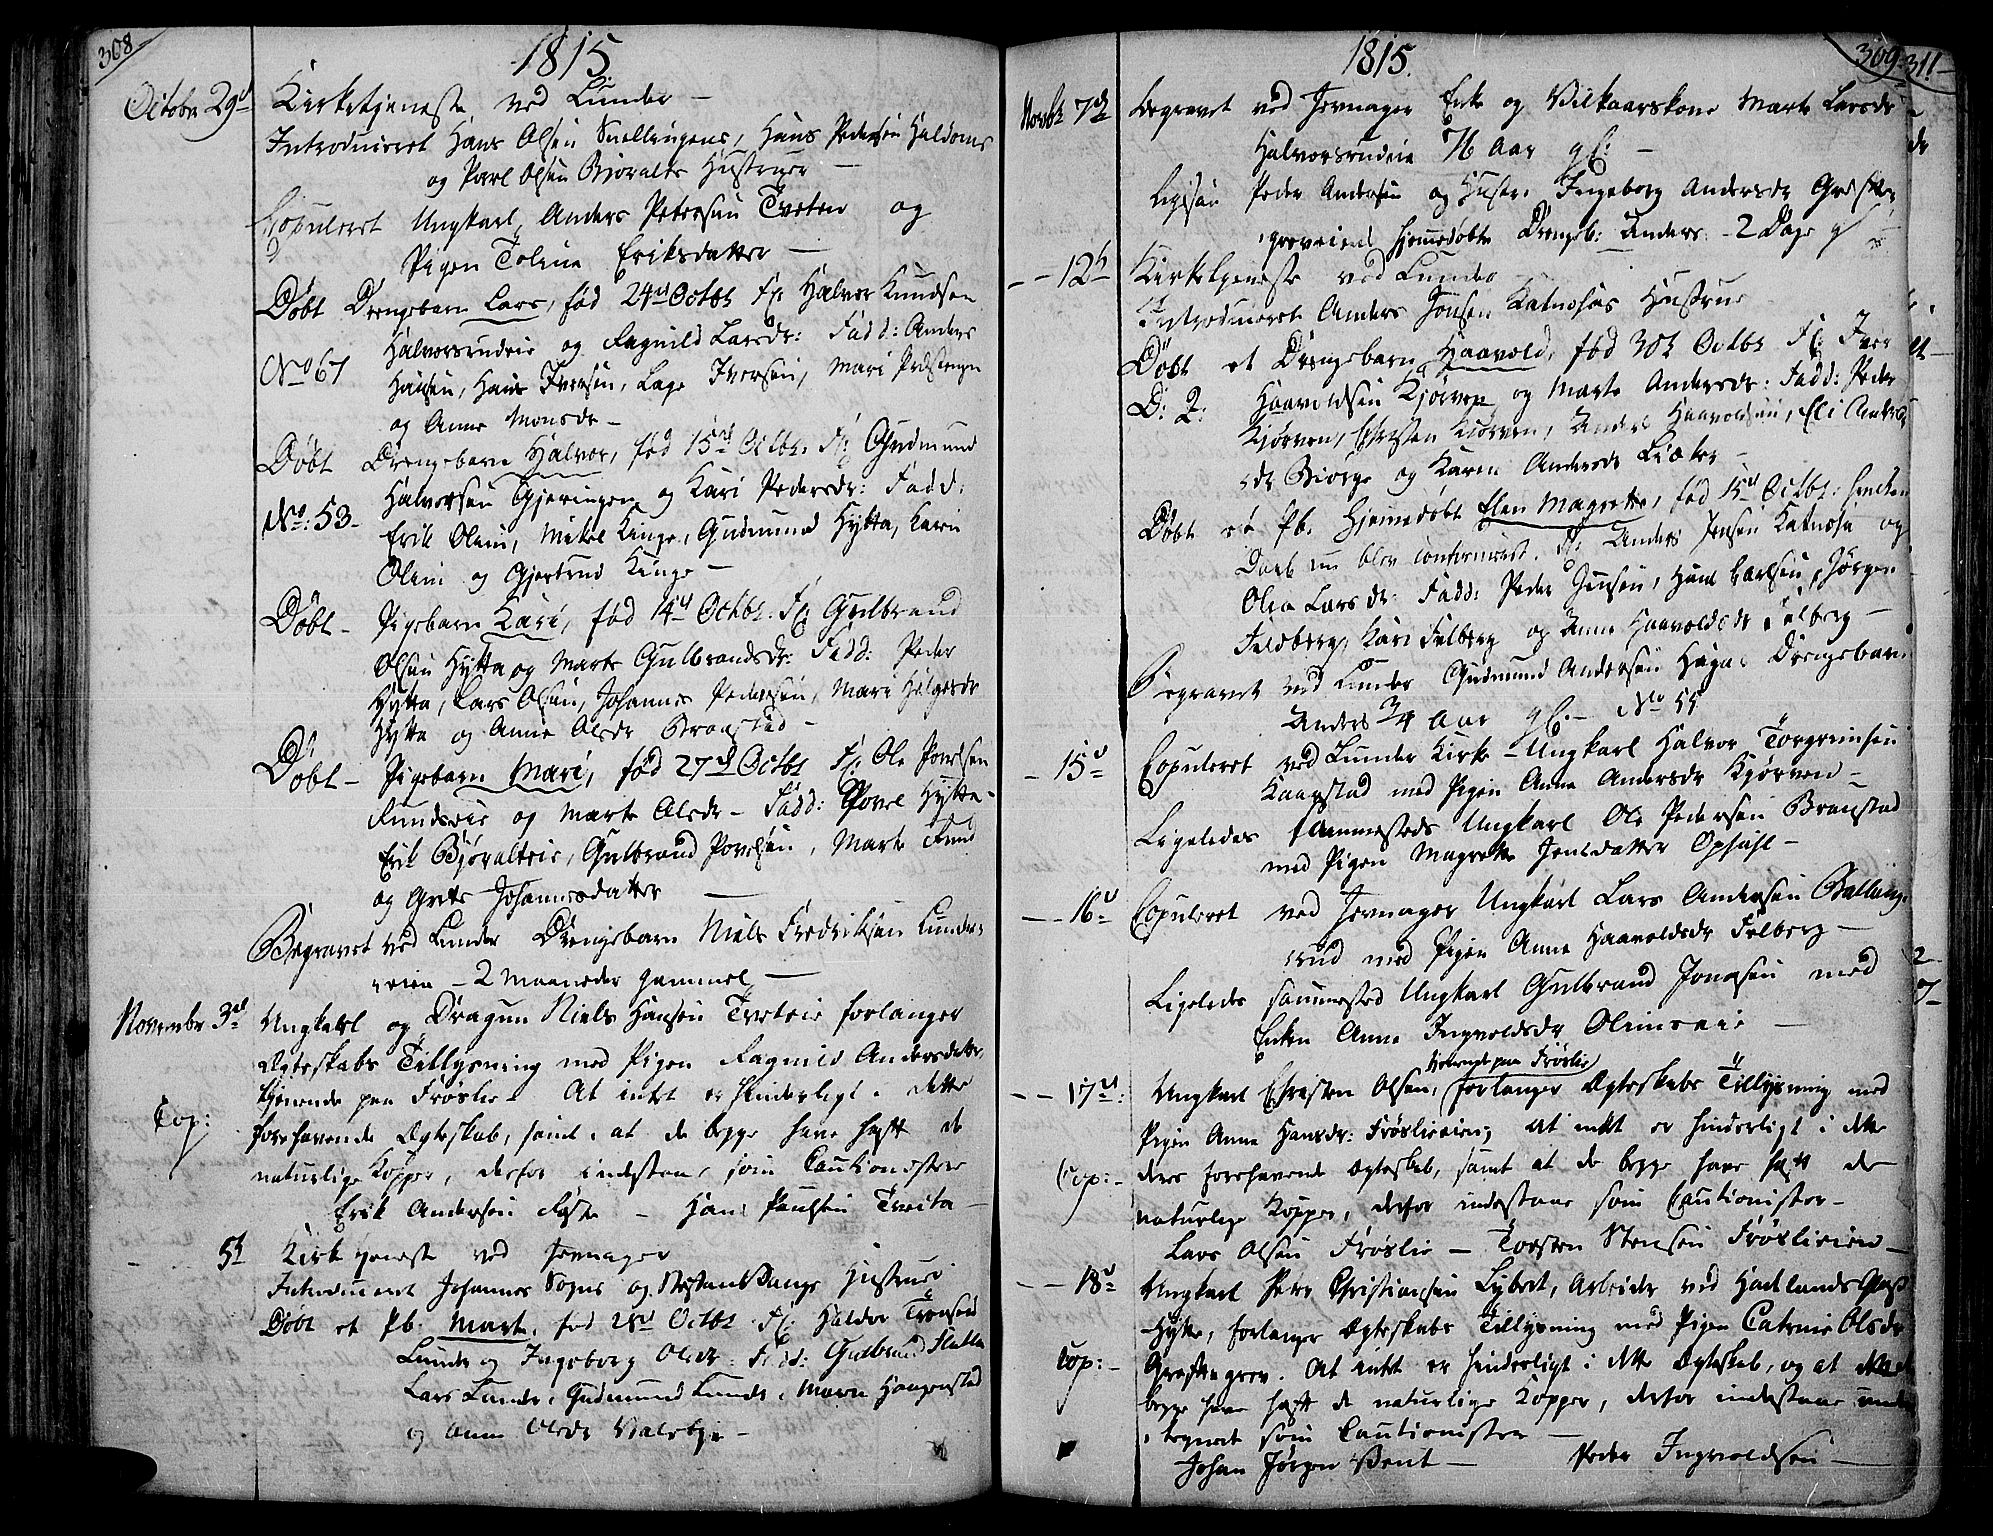 308
1815
Octobr 29d Kirketjeneste ved Lunder –
Introduceret Hans Olsen Snellingens, Hans Pedersen
og Povel Olsen Bjøralts Hustruer –
Copuleret Ungkarl Anders Petersen Tveten og
Pigen Eriksdatter –
Døbt Drengebarn Lars, fød 24d Octbr F: Halvor Knudsen
Halvorsrudeie og Ragnild Larsdr: Fadd: Anders
No 67 Hansen, Hans Iversen, Lage Iversen, Mari
og Anne Monsdr –
Døbt Drengebarn Halvor, fød 15d Octbr. F: Gudmund
Halvorsen Gjeringen og Kari Pedersdr: Fadd:
No: 53 – Erik Olsen, Mikel Kinge, Gudmund Hytta, Karen
Olsen og Gjertrud Kinge –
Døbt – Pigebarn Kari, fød 14d Octbr. F: Gulbrand
Olsen Hytta og Marte Gulbrandsdr: Fadd: Peder
Hytta, Lars Olsen, Johannes Pedersen, Mari Helgesdr
Hytta og Anne Olsdr Braastad –
Døbt – Pigebarn Mari, fød 27d Octbr F: Ole Povelsen
og Marte Olsdr – Fadd: Povel Hytta –
Erik Bjøralteie, Gulbrand Povelsen, Marte
og Grete Johannesdatter –
Begravet ved Lunder Drengebarn Niels Fredriksen Lunder
eien – 2 Maaneder gammel –
Novembr 3d Ungkarl og Dragun Niels Hansen Tveteie forlanger
Ægteskabs Tillysning med Pigen Ragnild Andersdatter,
tjenende paa Frøslie – At intet er hinderligt i dette
Cop: forehavende Ægteskab, samt, at de begge have haft de
naturlige Kopper, derfor indestaae som Cautionister
Erik Andersen – Hans Paulsen Tveita –
– 5t Kirketjeneste ved Jevnager
Introduceret Johannes Sogns og Hustruer
Døbt et Pb. Marte, fød 28d Octbr F: Haldor
Lunde og Ingeborg Olsdr: Fadd: Gulbrand
Lars Lunde, Gudmund Lunde, Maren Haugerstad
og Anne Olsdr –
1815.
309 311 –
Novbr 7d Begravet ved Jevnager Enke og Vilkaarskone Marte Larsdr
Halvorsrudeie 76 Aar gl: –
Ligesaa Peder Andersen og Hustr. Ingeborg Andersdr
greveiens hjemmedøbte Drengeb: Anders – 2 Dage gl –
– 12t Kirketjeneste ved Lunder
Introduceret Anders Jensen Katnosas Hustrue
Døbt et Drengebarn Haavold, fød 30t Octbr F: Iver
D: 2: Haavoldsen Kjørven og Marte Andersdr: Fadd: Peder
Kjørven, Christen Kjørven, Anders Haavoldsen, Eli Anders
dr Biørge og Karen Andersdr –
Døbt et Pb. hjemmedøbt Elen Magrette, fød 15d Octbr: hvilken
Daab nu blev confirmeret. F: Anders Jensen Katnosa og
Olea Larsdr: Fadd: Peder Jensen, Hans Carlsen, Jørgen
Felberg, Kari Felberg og Anne Haavoldsdr Felberg –
Begravet ved Lunder Gudmund Andersen Hagas Drengebarn
Anders 3/4 Aar gl: – No 55
– 15d Copuleret ved Lunder Kirke – Ungkarl Halvor Torgrimsen
Kaagstad med Pigen Anne Andersdr Kjørven –
Ligeledes sammesteds Ungkarl Ole Pedersen Braastad
med Pigen Magrette Jensdatter Opsahl –
– 16d Copuleret ved Jevnager Ungkarl Lars Andersen Ballang
rud med Pigen Anne Haavoldsdr Felberg –
Ligeledes sammested Ungkarl Gulbrand Jonasen med
Enken Anne Ingvoldsdr Olimseie –
værende paa Frøslie
– 17d: Ungkarl Christen Olsen, forlanger Ægteskabs Tillysning med
Pigen Anne Hansdr: Frøslieeien; At intet er hinderligt i dette
Cop: – deres forehavende Ægteskab, samt at de begge have haft de
naturlige Kopper, derfor indestaae som Cautionister –
Lars Olsen Frøslie – Torsten Stensen Frøslieeien –
– 18d Ungkarl Peter Christiansen Lybert, Arbeider ved Hadelands Glas
Hytte, forlanger Ægteskabs Tillysning med Pigen Catrine Olsdr
Cop: – Græstegrev. At intet er hinderligt i dette Ægteskab, og at de
begge have haft de naturlige Kopper, derfor indestaae under
tegnede som Cautionister –
Johan Jørgen Went – Peder Ingvoldsen –